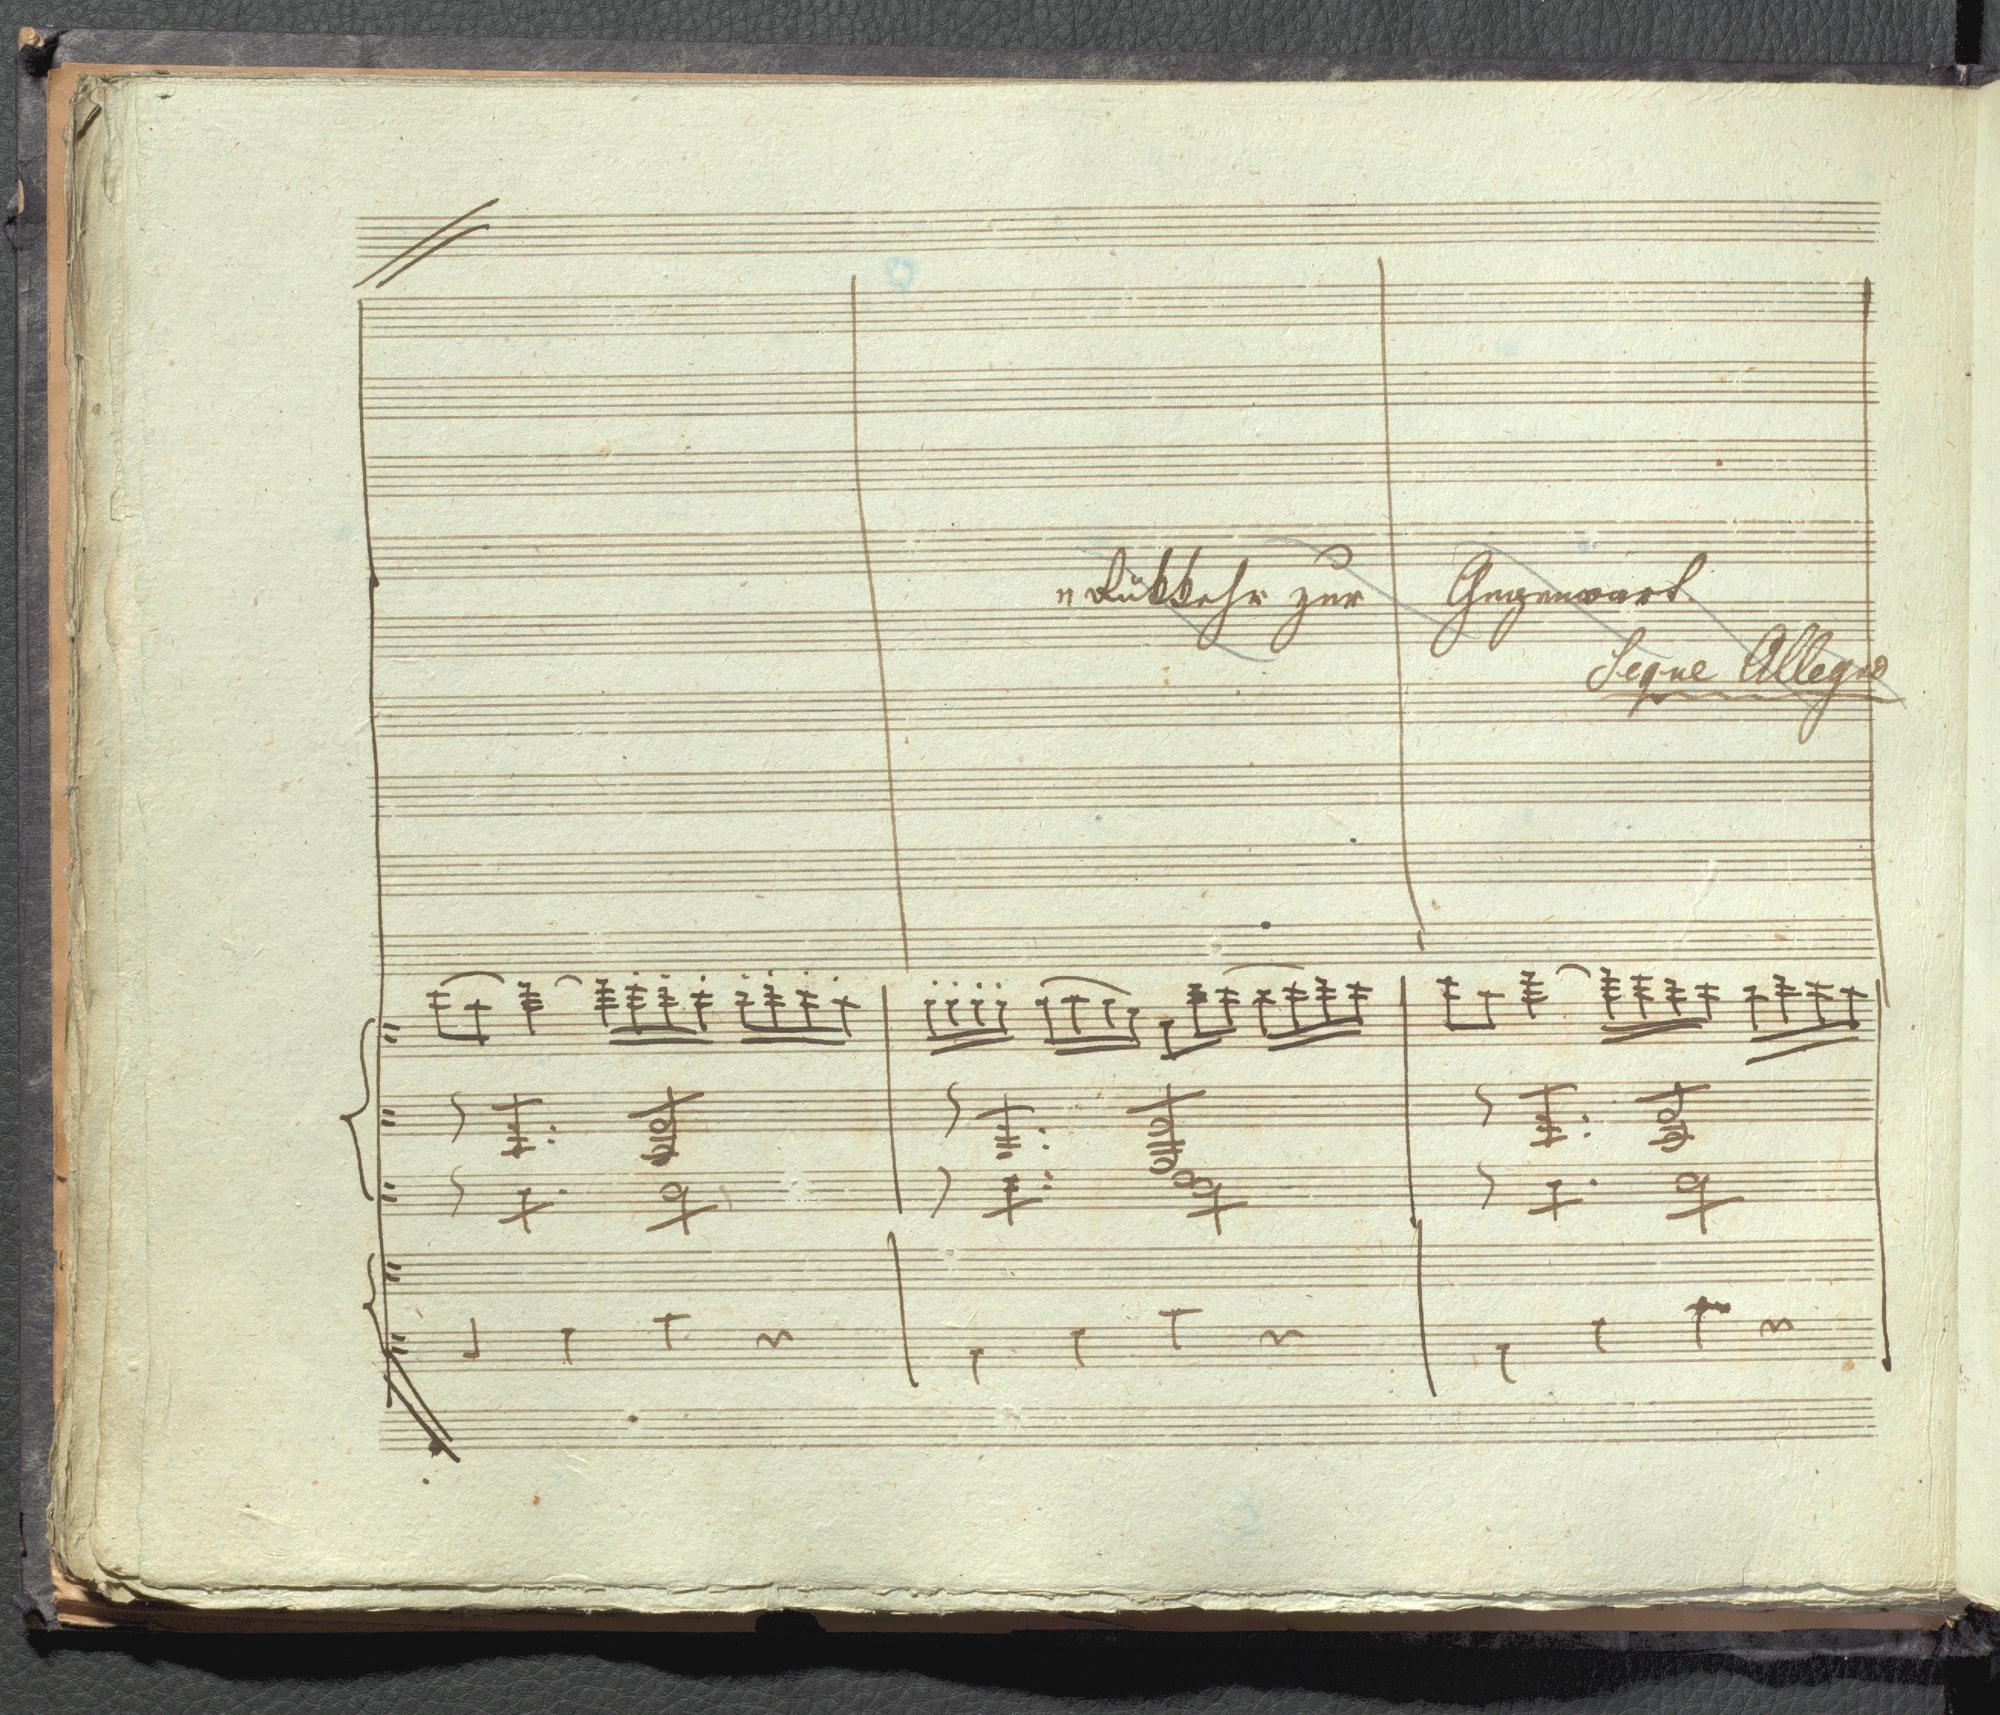 "Rükkehr zur Gegenwart.
Segue Allegro